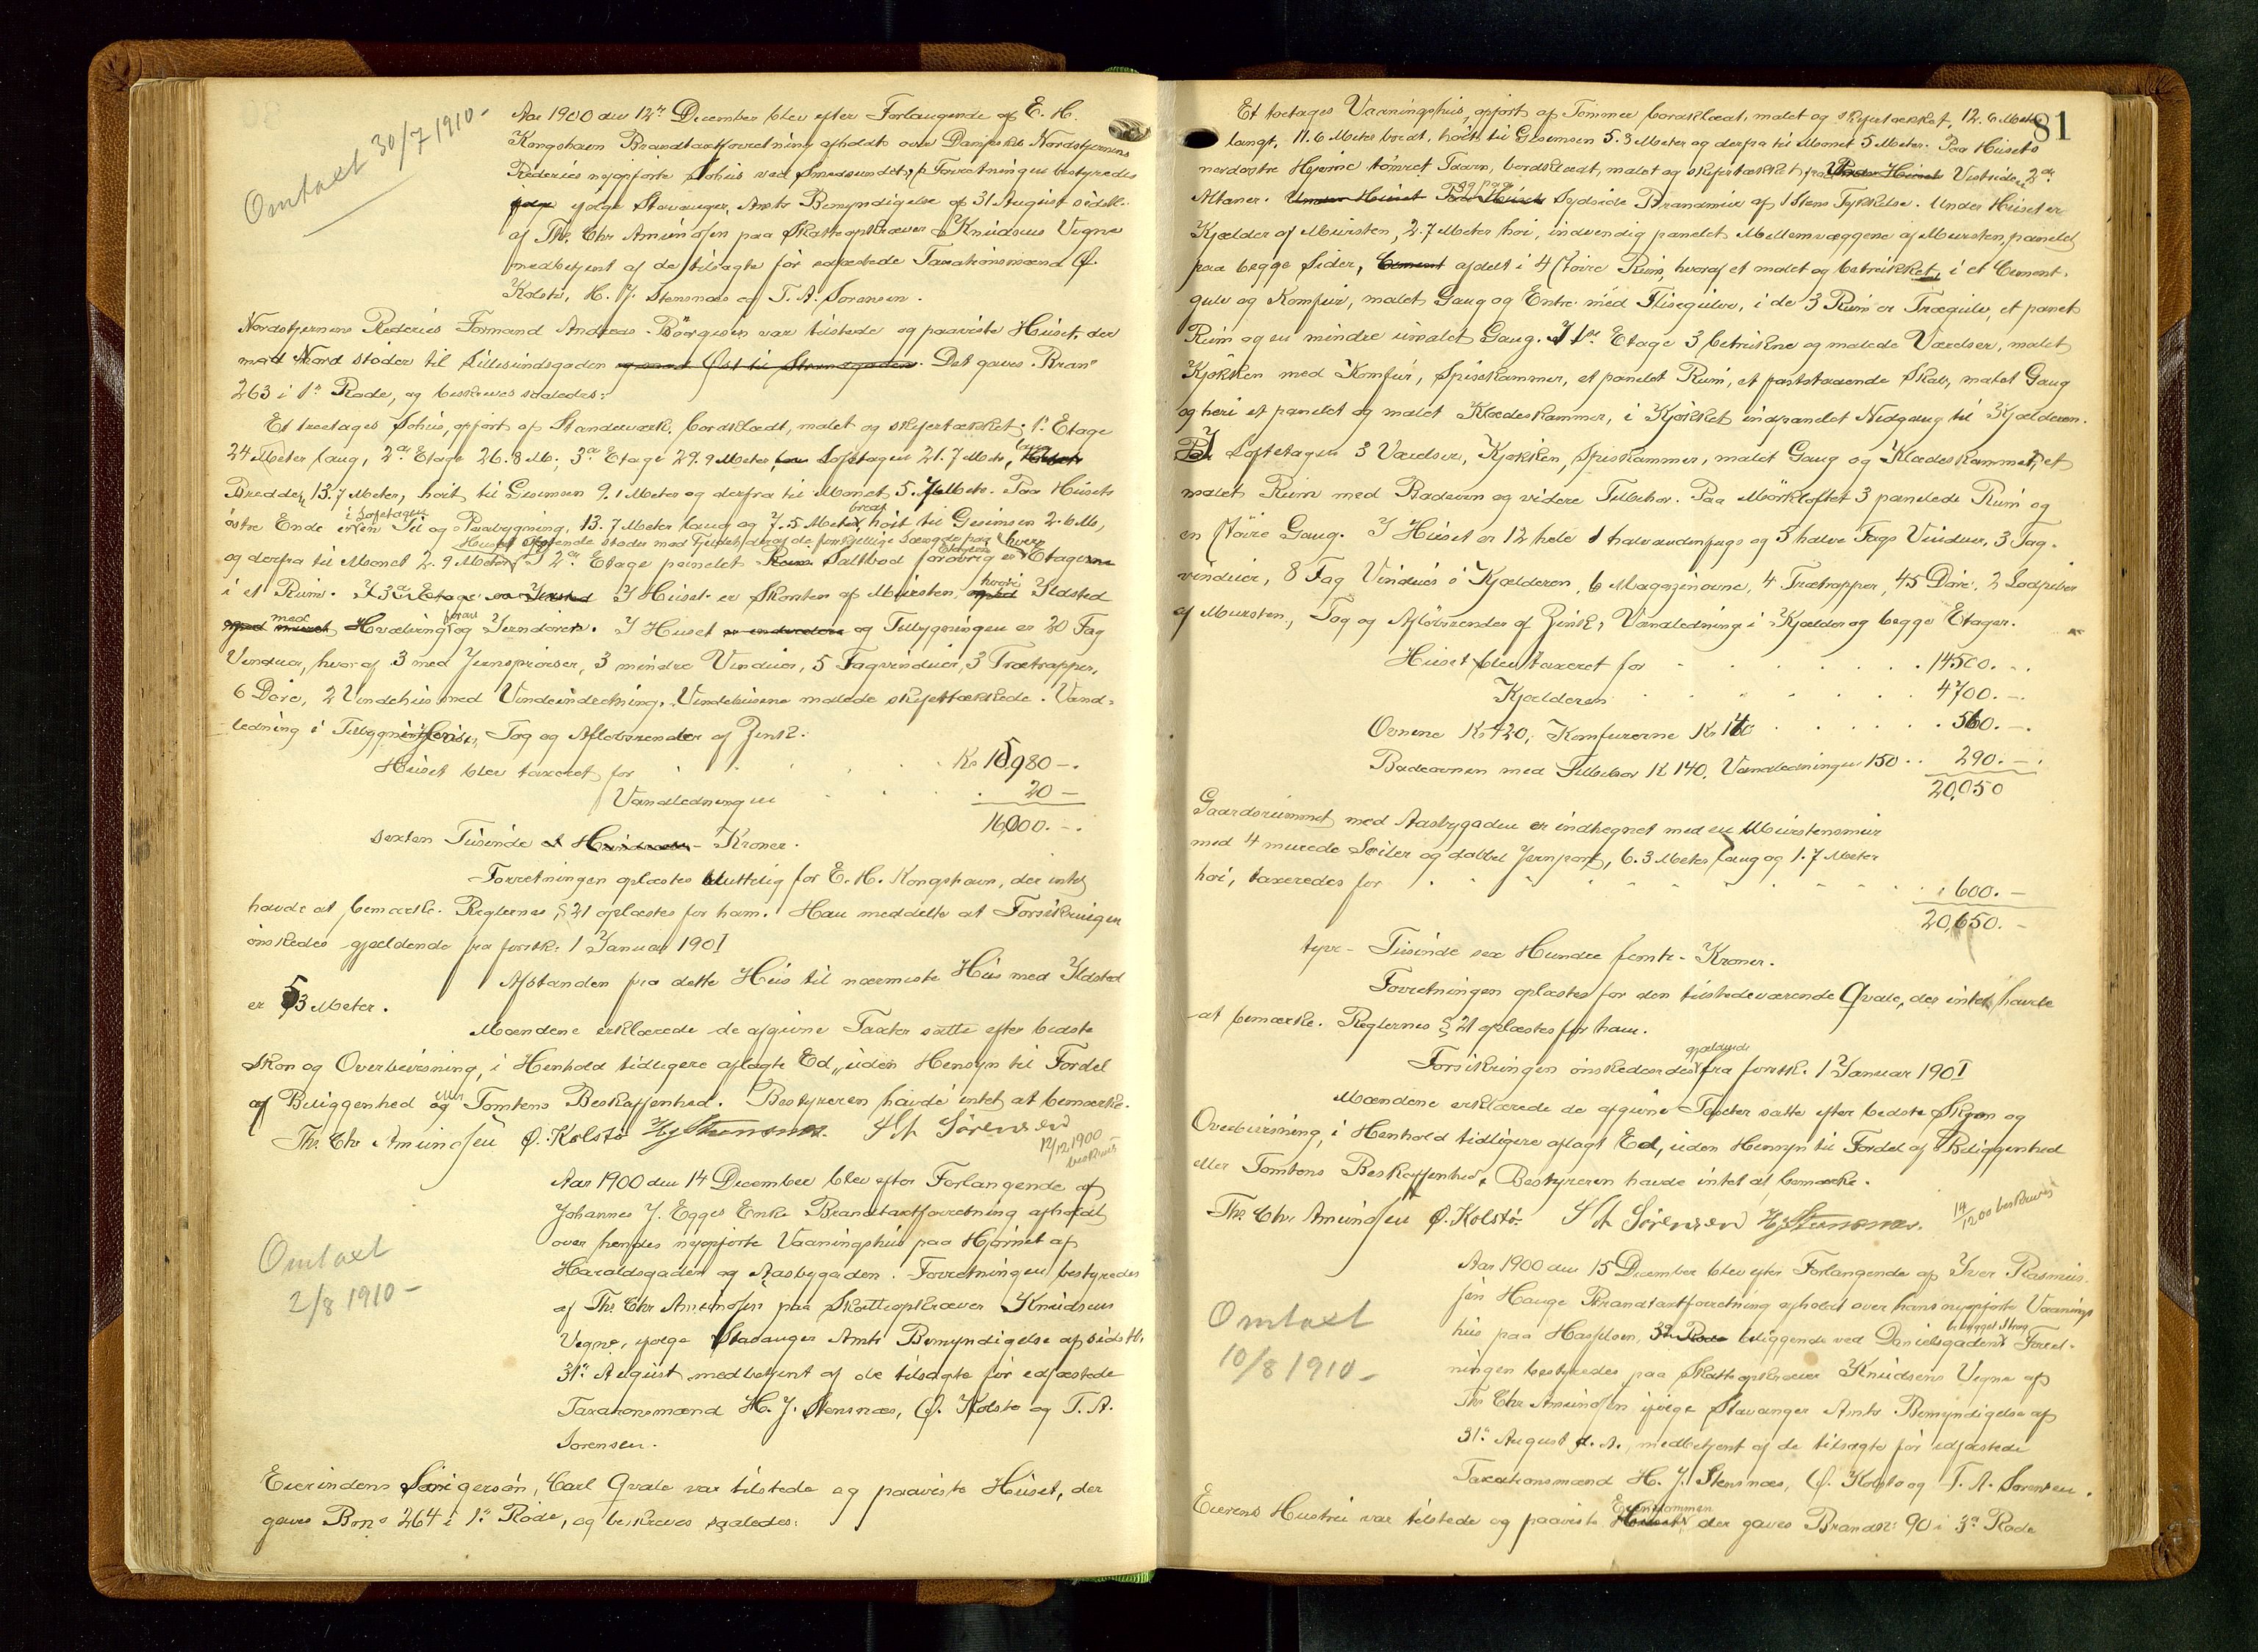 Omtaxt 30/7 1910-
Aar 1900 den 12te December blev efter Forlangende af E. H.
Kongshavn Brandtaxtforretning afholdt over Dampskib Nordstjernens
Rederies nyopførte Søhus ved Smedesundet, Forretningen bestyredes
ifølge Stavanger Amts Bemyndigelse af 31 August sidstl.
af Ths. Chr. Amundsen paa Skatteopkræver Knudsens Vegne
medbetjent af de tilsagte før edfæstede Taxationsmænd Ø.
Kolstø, H. J. Stensnæs og T. A. Sørensen.
Nordstjernens Rederies Formand Andreas Børgesen var tilstede og paaviste Huset, der
mod Nord støder til Lillesundsgaden og mod Øst til Strandgaden. Det gaves Bran°
263 i 1ste Rode, og beskreves saaledes:
Et treetages Søhus, opført af Standerværk, bordklædt, malet og skifertækket. 1ste Etage
24 Meter lang, 2den Etage 26.8 M., 3die Etage 29.9 Meter Loftetagen 21.7 Meter lang,
Bredden 13.7 Meter, høit til Gesimsen 9.1 Meter og derfra til Mønet 5.7 Meter. Paa Husets
østre Ende er i Loftetagen en Til og Paabygning, 13.7 Meter lang og 7.5 Meter bred, høit til Gesimsen 2.6 M.,
og derfra til Mønet 2.9 Meter. I 2den Etage panelet Saltbod forøvrig er hver Etage
i et Rum. I Huset er Skorsten af Mursten, hvori Ildsted
med Hvælving foran og Jerndøren. I Huset og Tilbygningen er 20 Fag
Vinduer, hvoraf 3 med Jernsprosser, 3 mindre Vinduer, 5 Tagvinduer, 3 Trætrapper,
6 Døre, 2 Vindehus med Vindeindretning, Vindehusene malede skifertækkede. Vand-
ledning i Tilbygningen, Tag og Afløbsrender af Zink.
Huset blev taxeret for Kr 15,980 -.
Vandledningen 20 -
16,000. -.
sexten Tusinde Kroner.
Forretningen oplæstes sluttelig for E. H. Kongshavn, der intet
havde at bemærke. Reglernes § 21 oplæstes for ham. Han meddelte at Forsikringen
ønskedes gjældende fra førstk: 1 Januar 1901
Afstanden fra dette Hus til nærmeste Hus med Ildsted
er 53 Meter.
Mændene erklærede de afgivne Taxter satte efter bedste
Skøn og Overbevisning, i Henhold tidligere aflagte Ed, uden Hensyn til Fordel
af Beliggenhed eller Tomtens Beskaffenhed. Bestyreren havde intet at bemærke.
Ths. Chr Amundsen Ø. Kolstø HJ Stensnæs. T A Sørensen
12/12 1900 beskreves
Omtaxt
2/8 1910-
Aar 1900 den 14 December blev efter Forlangende af
Johannes J. Egges Enke Brandtaxtforretning afholdt
over hendes nyopførte Vaaningshus paa Hjørnet af
Haraldsgaden og Aasbygaden. Forretningen bestyredes
af Ths. Chr Amundsen paa Skatteopkræver Knudsens
Vegne, ifølge Stavanger Amts Bemyndigelse af sidstl.
31te August medbetjent af de tilsagte før edfæstede
Taxationsmænd H. J. Stensnæs, Ø. Kolstø og T. A.
Sørensen.
Eierindens Svigersøn, Carl Qvale var tilstede og paaviste Huset, der
gaves Brno 264 i 1ste Rode, og beskreves saaledes:
81
Et toetages Vaaningshus, opført af Tømmer bordklædt, malet og skifertækket, 12.6 Meter
langt, 11.6 Meter bredt, høit til Gesimsen 5.3 Meter og derfra til Mønet 5 Meter. Paa Husets
nordøstre Hjørne tømret Taarn, bordklædt, malet og skifertækket, paa Vestsiden 2de
Altaner. og paa Sydside Brandmur af 1 Stens Tykkelse. Under Huset er
Kjælder af Mursten, 2.7 Meter høi, indvendig panelet Mellemvæggene af Mursten, panelet
paa begge Sider, afdelt i 4 større Rum, hvoraf et malet og betrukket, i et Cement-
gulv og Komfur, malet Gang og Entre med Flisegulve, i de 3 Rum er Trægulv, et panelt
Rum og en mindre umalet Gang. I 1ste Etage 3 betrukne og malede Værelser, malet
Kjøkken med Komfur, Spisekammer, et panelet Rum, et faststaaende Skab, malet Gang
og heri et panelet og malet Klædeskammer, i Kjøkket indpanelet Nedgang til Kjælderen.
I Loftetagen 3 Værelser, Kjøkken, Spiskammer, malet Gang og Klædeskammer, et
malet Rum med Badeovn og videre Tilbehør. Paa Mørkloftet 3 panelede Rum og
en større Gang. I Huset er 12 hele 1 halvandenfags og 3 halve Fags Vinduer, 3 Tag-
vinduer, 8 Fag Vinduer i Kjælderen, 6 Magazinovne, 4 Trætrapper, 45 Døre, 2 Lodpiber
af Mursten, Tag og Afløbsrender af Zink, Vandledning i Kjælder og begge Etager.
Huset blev taxeret for 14500. -.
Kjælderen 4700. -.
Ovnene Kr 420, Komfurerne Kr 140 560. -.
Badeovnen med Tilbehør Kr 140, Vandledningen 150 290. -.
20,050
Gaardsrummet med Aasbygaden er indhegnet med en Murstensmur
med 4 murede Søiler og dobbel Jernport, 6.3 Meter lang og 1.7 Meter
høi, taxeredes for 600. -
20,650. -
tyve - Tusinde sex Hundre femti - Kroner.
Forretningen oplæstes for den tilstedeværende Qvale, der intet havde
at bemærke. Reglernes § 21 oplæstes for ham.
Forsikringen ønskedes gjældende fra førstk. 1 Januar 1901
Mændene erklærede de afgivne Taxter satte efter bedste Skøn og
Overbevisning, i Henhold tidligere aflagt Ed, uden Hensyn til Fordel af Beliggenhed
eller Tomtens Beskaffenhed. Bestyreren havde intet at bemærke.
Ths. Chr. Amundsen Ø. Kolstø. T A Sørensen HJ Stensnæs.
14/12 00 beskreves
Omtaxt
10/8 1910-
Aar 1900 den 15 December blev efter Forlangende af Iver Rasmus-
sen Hauge Brandtaxtforretning afholdt over hans nyopførte Vaanings
hus paa Hasseløen, beliggende ved Danielsgadens bebygget Strøg Forret-
ningen bestyredes paa Skatteopkræver Knudsens Vegne af
Ths. Chr Amundsen ifølge Stavanger Amts Bemyndigelse af
31te August d. A., medbetjent af de tilsagte før edfæstede
Taxationsmænd H. J. Stensnæs, Ø. Kolstø og T. A. Sørensen.
Eierens Hustru var tilstede og paaviste Eiendommen der gaves Brandnr: 90 i 3die Rode